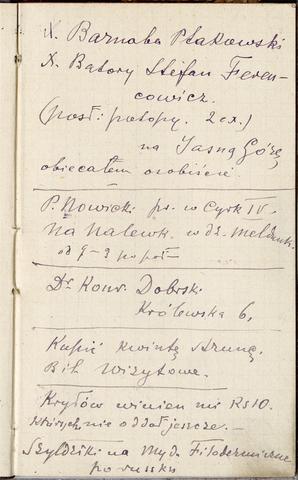 X. Barnaba Ptakowski
X. Batory Stefan Feren-
cowicz.
(posł: potopy. 2 ex.)
na Jasną Górę
obiecałem osobiście
P. Nowicki ps. w Cyrk IV.
na Nalewk. w dz. meldunk.
od 7-9 po poł
Dr Konr. Dobrski
Królewska 6.
Kupić kwintę strunę.
Bil. Wizytowe.
Kryłów winien mi Rs 10.
których nie oddał jeszcze. —
Szyldziki na Myd. Fitodermiczne
po rusku